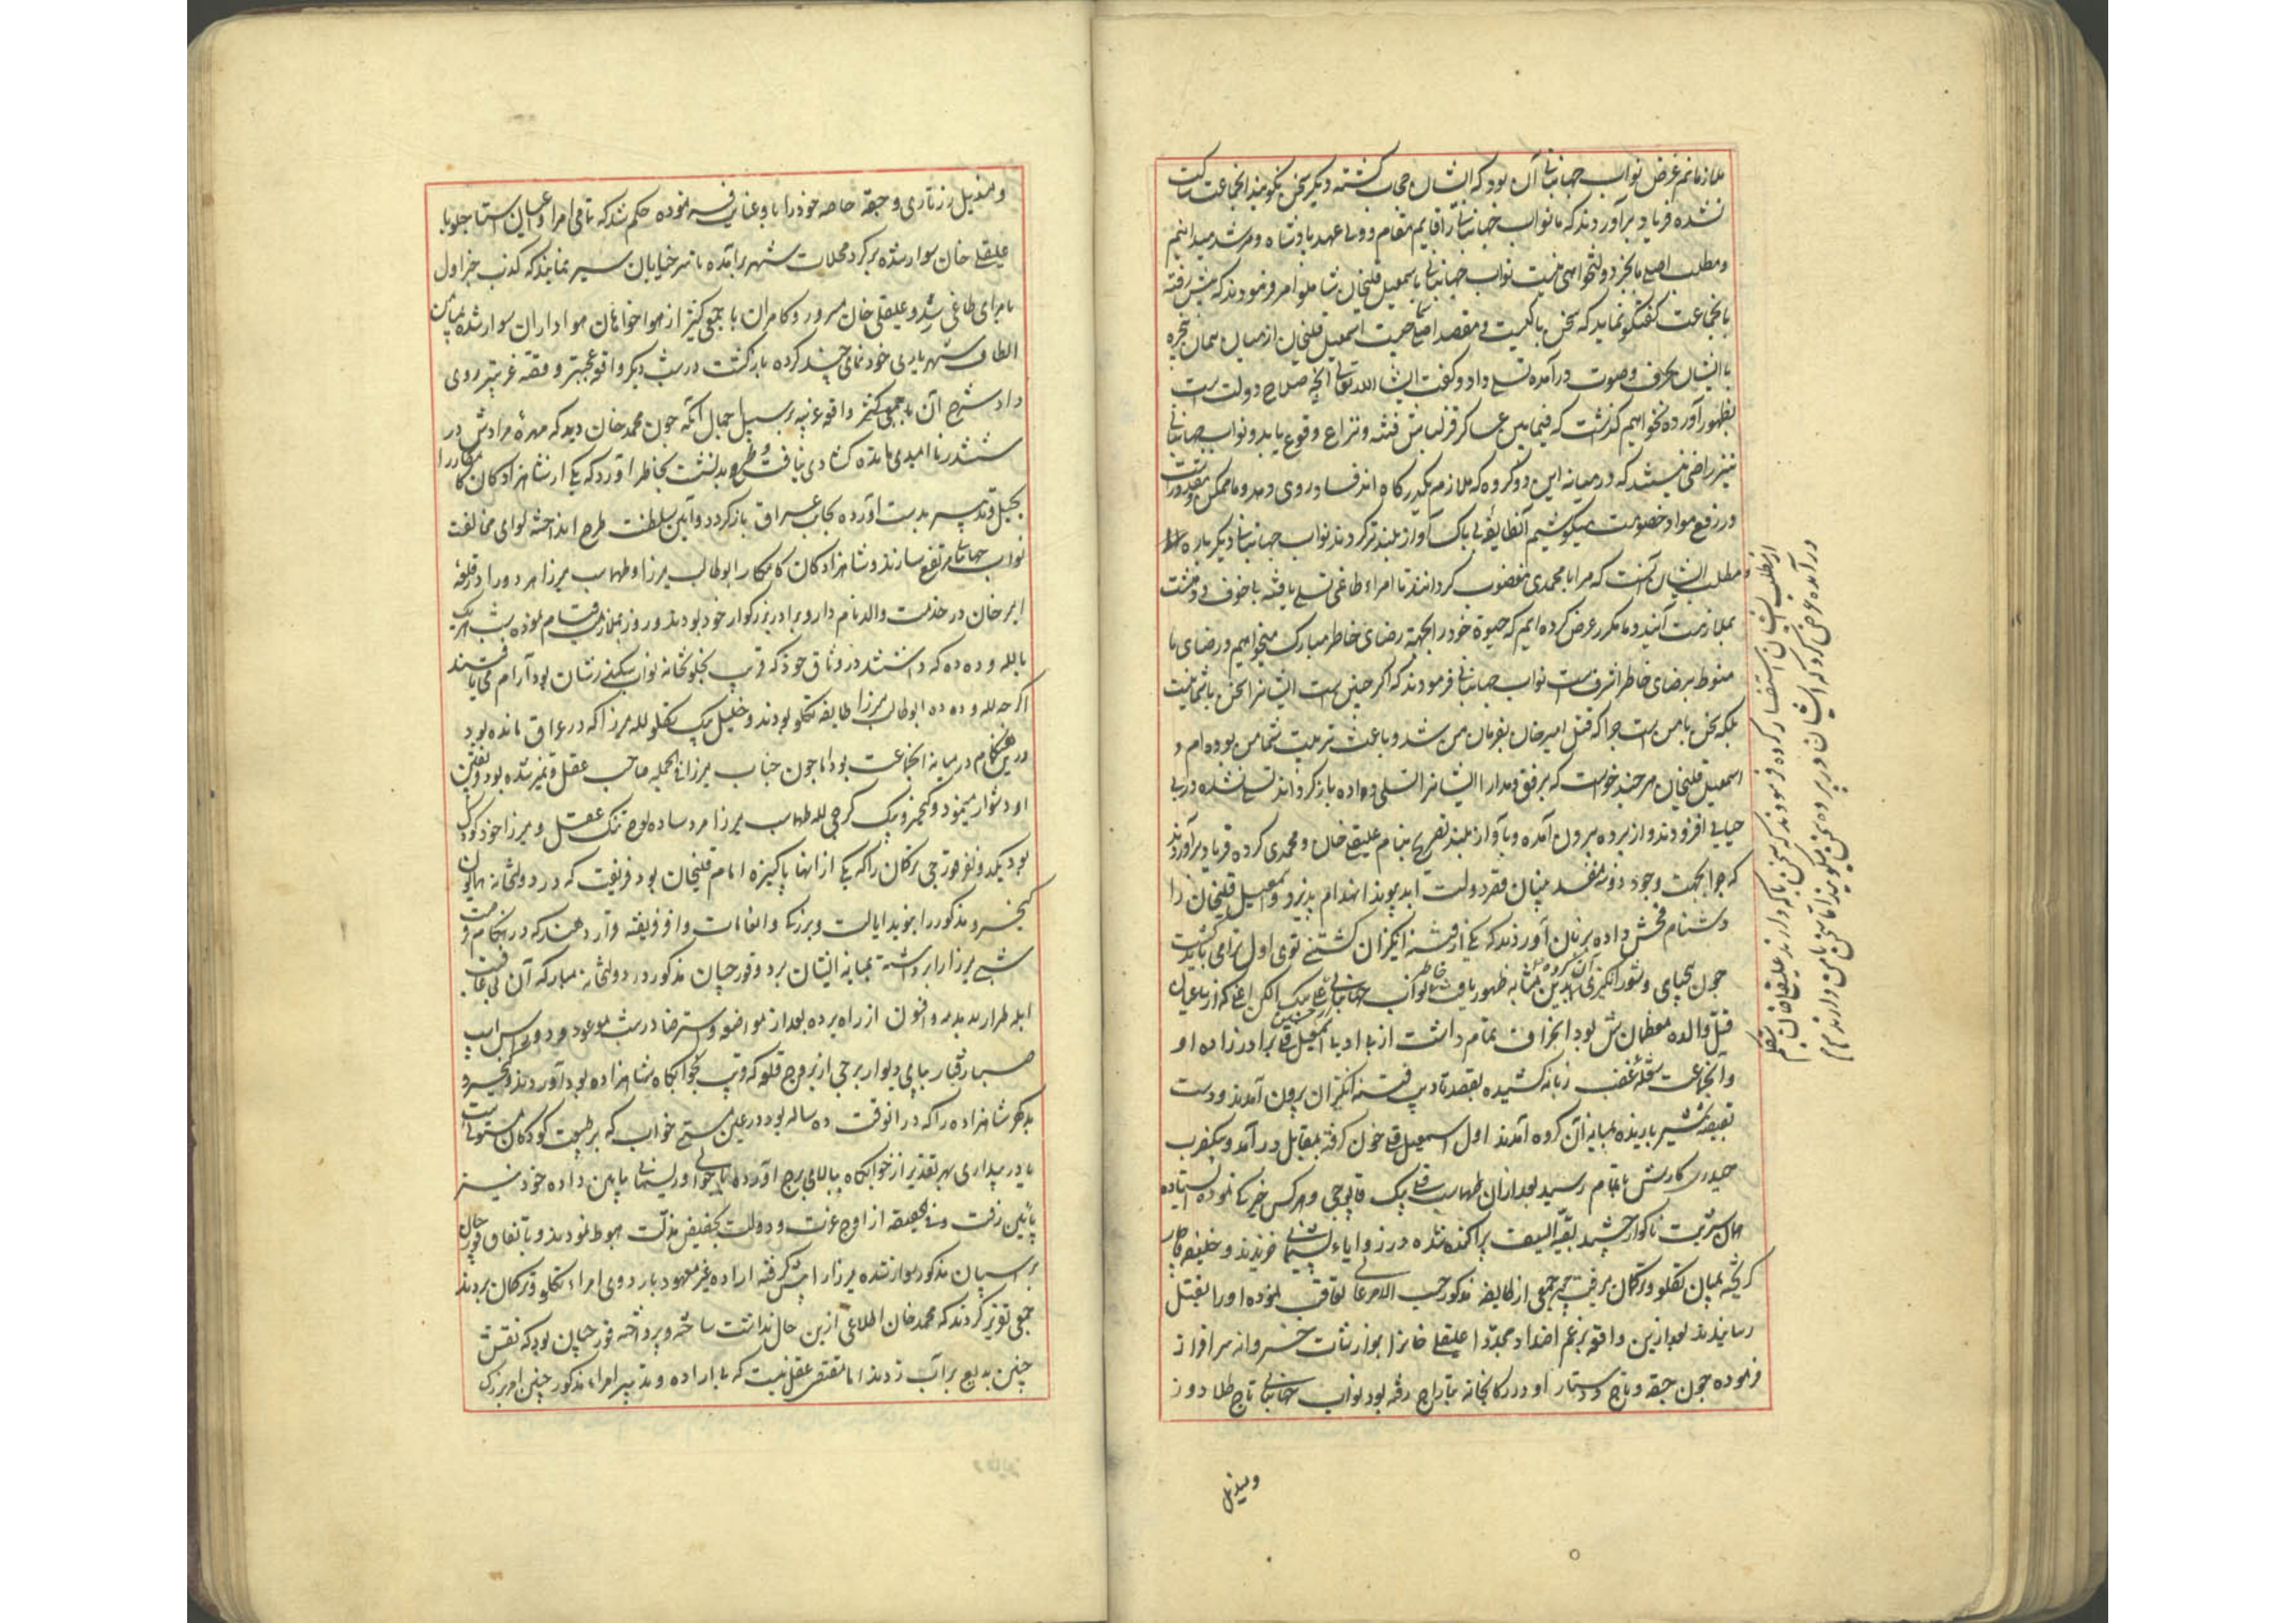 ملازمانم غرض نواب جهانبانی آن بود که ایشان حجاب کشته دیگر سخن نکویند انجماعت ساکت
نشده فریاد برآوردند که ما نواب جهانبانی را قایم مقام و ولی عهد پادشاه و مرشد میدانیم
و مطلب اصلی ما بجز دولتخواهی نیست نواب جهانبانی باسمعیل قلیخان شاملو امر فرمودند که پیش رفته
با انجماعت کفتکو نماید که سخن با کیست و مقصد اصلی چیست اسمعیل قلیخان از میان همان پنجره
با ایشان بحرف و صوت درآمده تسلی داد و کفت انشا الله تعالی انچه صلاح دولت است
بظهور آورده نخواهیم کذاشت که فیمابین عساکر قزلباش فتنه و نزاع وقوع یابد و نواب جهانبانی
نیز راضی نیستند که در میانه این دو کروه که ملازم یکدرکاه اند فساد روی دهد و ما ممکن و مقدورست
در رفع مواد خصومت میکوشیم آنطایفه بی باک آواز بلندتر کردند نواب جهانبانی دیکرباره
مطلب ایشان آنست که مرا با محمدی مغضوب کردانند تا امراء طاغی تسلی یافته بی خوف و دهشت
بملازمت آیند و ما مکرر عرض کرده ایم که حیوة خود را بجهة رضای خاطر مبارک میخواهیم و رضای ما
منوط برضای خاطر اشرف است نواب جهانبانی فرمودند که اکر چنین است ایشانرا سخن با شما نیست
بلکه سخن با من است چرا که قتل امیر خان بفرمان من شد و باعث تربیت شما من بوده ام و
اسمعیل قلیخان هر چند خواست که برفق و مدارا ایشانرا تسلی داده بازکرداند تسلی نشده در بی
حیایی افزودند و از پرده بیرون آمده و بآواز بلند تصریح بنام علیقلی خان و محمدی کرده فریاد برآوردند
که چرا بجهت وجود دو سه مفسد بنیان قصر دولت ابد پیوند انهدام پذیرد و اسمعیل قلیخان را
دشنام فحش داده بر زبان آوردند که یکی از فتنه انکیزان کشتنی توی اول ترا می باید کشت
چون بیحیایی و شور انکیزی آن کروه بدین مثابه ظهور یافت خاطر نواب جهانبانی
قتل والده معظمه اش بود انحراف تمام داشت از آنها با اسمعیل قلی برادرزاده او
و آنجماعت شعله غضب زبانه کشیده بقصد تادیب فتنه انکیزان بیرون آمدند و دست
بقبضه شمشیر یازیده بمیانه آن کروه آمدند اول اسمعیل قلی خون کرفته بمقابل درآمد و بیکضرب
حیدری کارش باتمام رسید بعد از آن طهماسب قلی بیک قاپوچی و هر کس خیرکی نموده ایستاده
همان شربت ناکوار چشید بقیة السیف پراکنده شده در زوایاء پشیمانی خزیدند و خلیفه
کریخته بمیان تکلو و ترکمان میرفت جمعی از طایفه مذکور حسب الامر عالی تعاقب نموده او را بقتل
رسانیدند بعد ازین واقعه برغم اضداد مجددا علیقلی خانرا بنوازشات خسروانه سرافراز
فرموده چون جیقه و تاج و دستار او در کارخانه بتاراج رفته بود نواب جهانبانی تاج طلادوز
ومندیل
از مطلب ایشان استفسار کرده فرمودند که سخن با که دارند علیقلی خان
درآمده عرض کرد که ایشان در پرده سخن میکویند اما سخن با من دارند
ومندیل زرتاری و جیقه خاصه خود را باو عنایت فرموده حکم شد که تمامی امرا و اعیان استاجلو با
علیقلی خان سوار شده بر کرد محلات شهر برآمده تا سر خیابان سیر نمایند که کذب خبر اول
بامرای طاغی شد و علیقلی خان مسرور و کامران با جمعی کثیر از هواخواهان هواداران سوار شده
الطاف شهریاری خود نمایی چند کرده بازکشت در شب دیکر واقعه عجیبتر و قصه غریبتر روی
داد شرح آن واقعه بر سبیل اجمال آنکه چون محمد خان دید که مهره مرادش در
ششدر ناامیدی مانده کشادی نیافت بخاطر آورد که یکی از شاهزادکان کامکار را
بحیل و تدبیر بدست آورده بجانب عراق بازکردد و آیین سلطنت طرح انداخته لوای مخالفت
نواب جهانبانی مرتفع سازند و شاهزادکان کامکار ابوطالب میرزا و طهماسب میرزا هر دو را در قلعه
ابر خان در خدمت والد نامدار و برادر بزرکوار خود بودند و روز بملازمت قیام نموده شب هر یک
با لله و دده که داشتند در وثاق خود که قریب بخلوتخانه نواب سکندرشان بود آرام می یافتند
اکرچه لله و دده ابوطالب میرزا طایفه تکلو بودند و خلیل بیک تکلو لله میرزا که در عراق مانده بود
درین هنکام در میانه انجماعت بود اما چون جناب میرزا فی الجمله صاحب عقل و تمیز شده بود
او دشوار مینمود و کیخسرو بیک کرجی لله طهماسب میرزا مرد ساده لوح تنک عقل و میرزا خود کودک
بود یکدو نفر قورچی ترکمان را که یکی از انها پاکیزه امام قلیخان بود فریفت که در دولتخانه همایون
کیخسرو مذکور را بنوید ایالت و بزرکی و انعامات وافر فریفته قرار دهند که در هنکام فرصت
شبی میرزا را برداشته بمیانه ایشان برد و قورچیان مذکور در دولتخانه مبارکه آن بی عاقبت
ابله طرار بدمدمه و افسون از راه برده بعد از مواضعه و استرضا در شب موعود مردو سه راس اسب
صبارفتار بپای دیوار برجی از بروج قلعه که قریب بخوابکاه شاهزاده بود آوردند و کیخسرو
بدکهر شاهزاده را که در انوقت ده ساله بود در عین مستی خواب که بر طبیعت کودکان مستولیست
یا در بیداری بهر تقدیر از خوابکاه ببالای برج آورده ریسمانی بپایین داده خود نیز
پائین رفت و فی الحقیقه از اوج عزت و دولت بحضیض مذلت هبوط نمودند و باتفاق قورچیان
بر اسپان مذکور سوار شده میرزا را پیش کرفته اراده غیر معهود باردوی امراء تکلو و ترکمان بردند
جمعی تقریر کردند که محمد خان اطلاعی ازین حال نداشت ساخته و پرداخته قورچیان بود که نقش
چنین بدیع بر آب زدند اما مقتضی عقل نیست که بی اراده و تدبیر امراء مذکور چنین امر بزرک